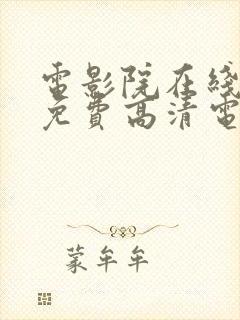 電影院在綫
免費高清電
蒙牟牟